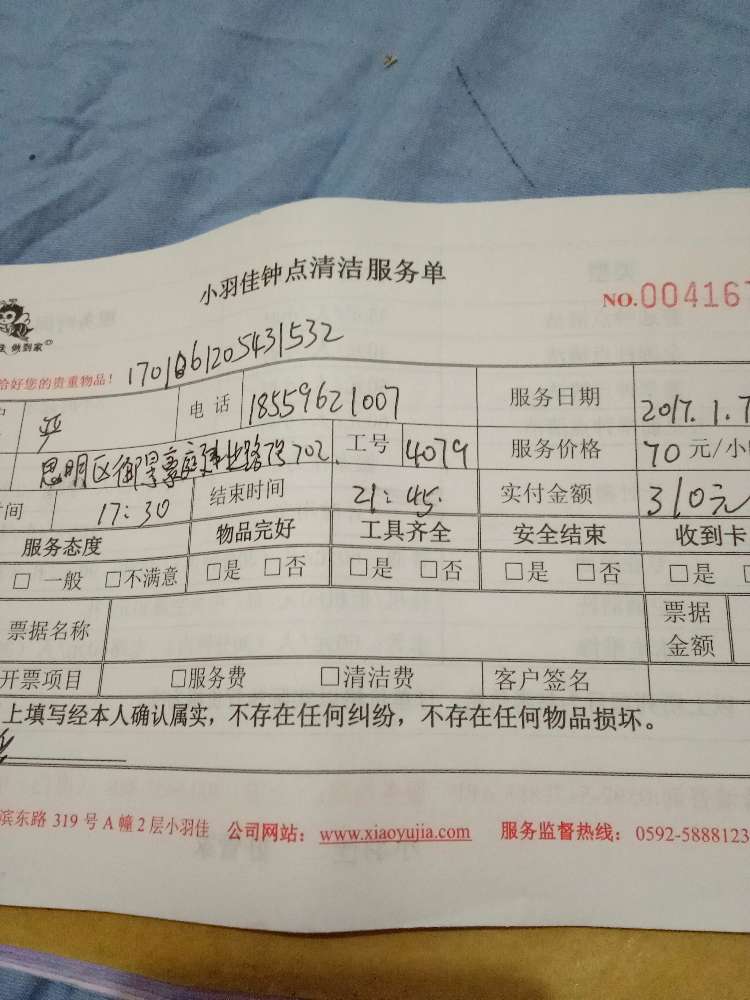 小羽佳钟点清洁服务单
NO.004167
做到家
恰好您的贵重物品! 1701061205431532
严 电话 18559621007 服务日期 2017.1.7
思明区御景豪庭建业路7号702 工号 4079 服务价格 70元/小
时间 17:30 结束时间 21:45. 实付金额 310元
服务态度 物品完好 工具齐全 安全结束 收到卡
□ 一般 □不满意 □是 □否 □是 □否 □是 □否 □是
票据名称 票据金额
开票项目 □服务费 □清洁费 客户签名
上填写经本人确认属实，不存在任何纠纷，不存在任何物品损坏。
滨东路 319 号 A 幢 2 层小羽佳 公司网站： www.xiaoyujia.com 服务监督热线： 0592-5888123